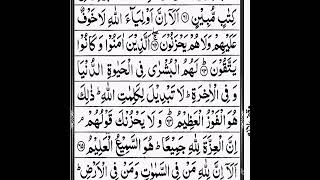 كِتٰبٍ مُّبِيْنٍ ۝۶۱ اَلَاۤ اِنَّ اَوْلِيَآءَ اللّٰهِ لَا خَوْفٌ
عَلَيْهِمْ وَلَا هُمْ يَحْزَنُوْنَ ۝۶۲ الَّذِيْنَ اٰمَنُوْا وَكَانُوْا
يَتَّقُوْنَ ۝۶۳ لَهُمُ الْبُشْرٰى فِى الْحَيٰوةِ الدُّنْيَا
وَ فِى الْاٰخِرَةِ ؕ لَا تَبْدِيْلَ لِكَلِمٰتِ اللّٰهِ ؕ ذٰلِكَ
هُوَ الْفَوْزُ الْعَظِيْمُ ۝۶۴ وَ لَا يَحْزُنْكَ قَوْلُهُمْ ۘ
اِنَّ الْعِزَّةَ لِلّٰهِ جَمِيْعًا ؕ هُوَ السَّمِيْعُ الْعَلِيْمُ ۝۶۵
اَلَاۤ اِنَّ لِلّٰهِ مَنْ فِى السَّمٰوٰتِ وَمَنْ فِى الْاَرْضِ ؕ